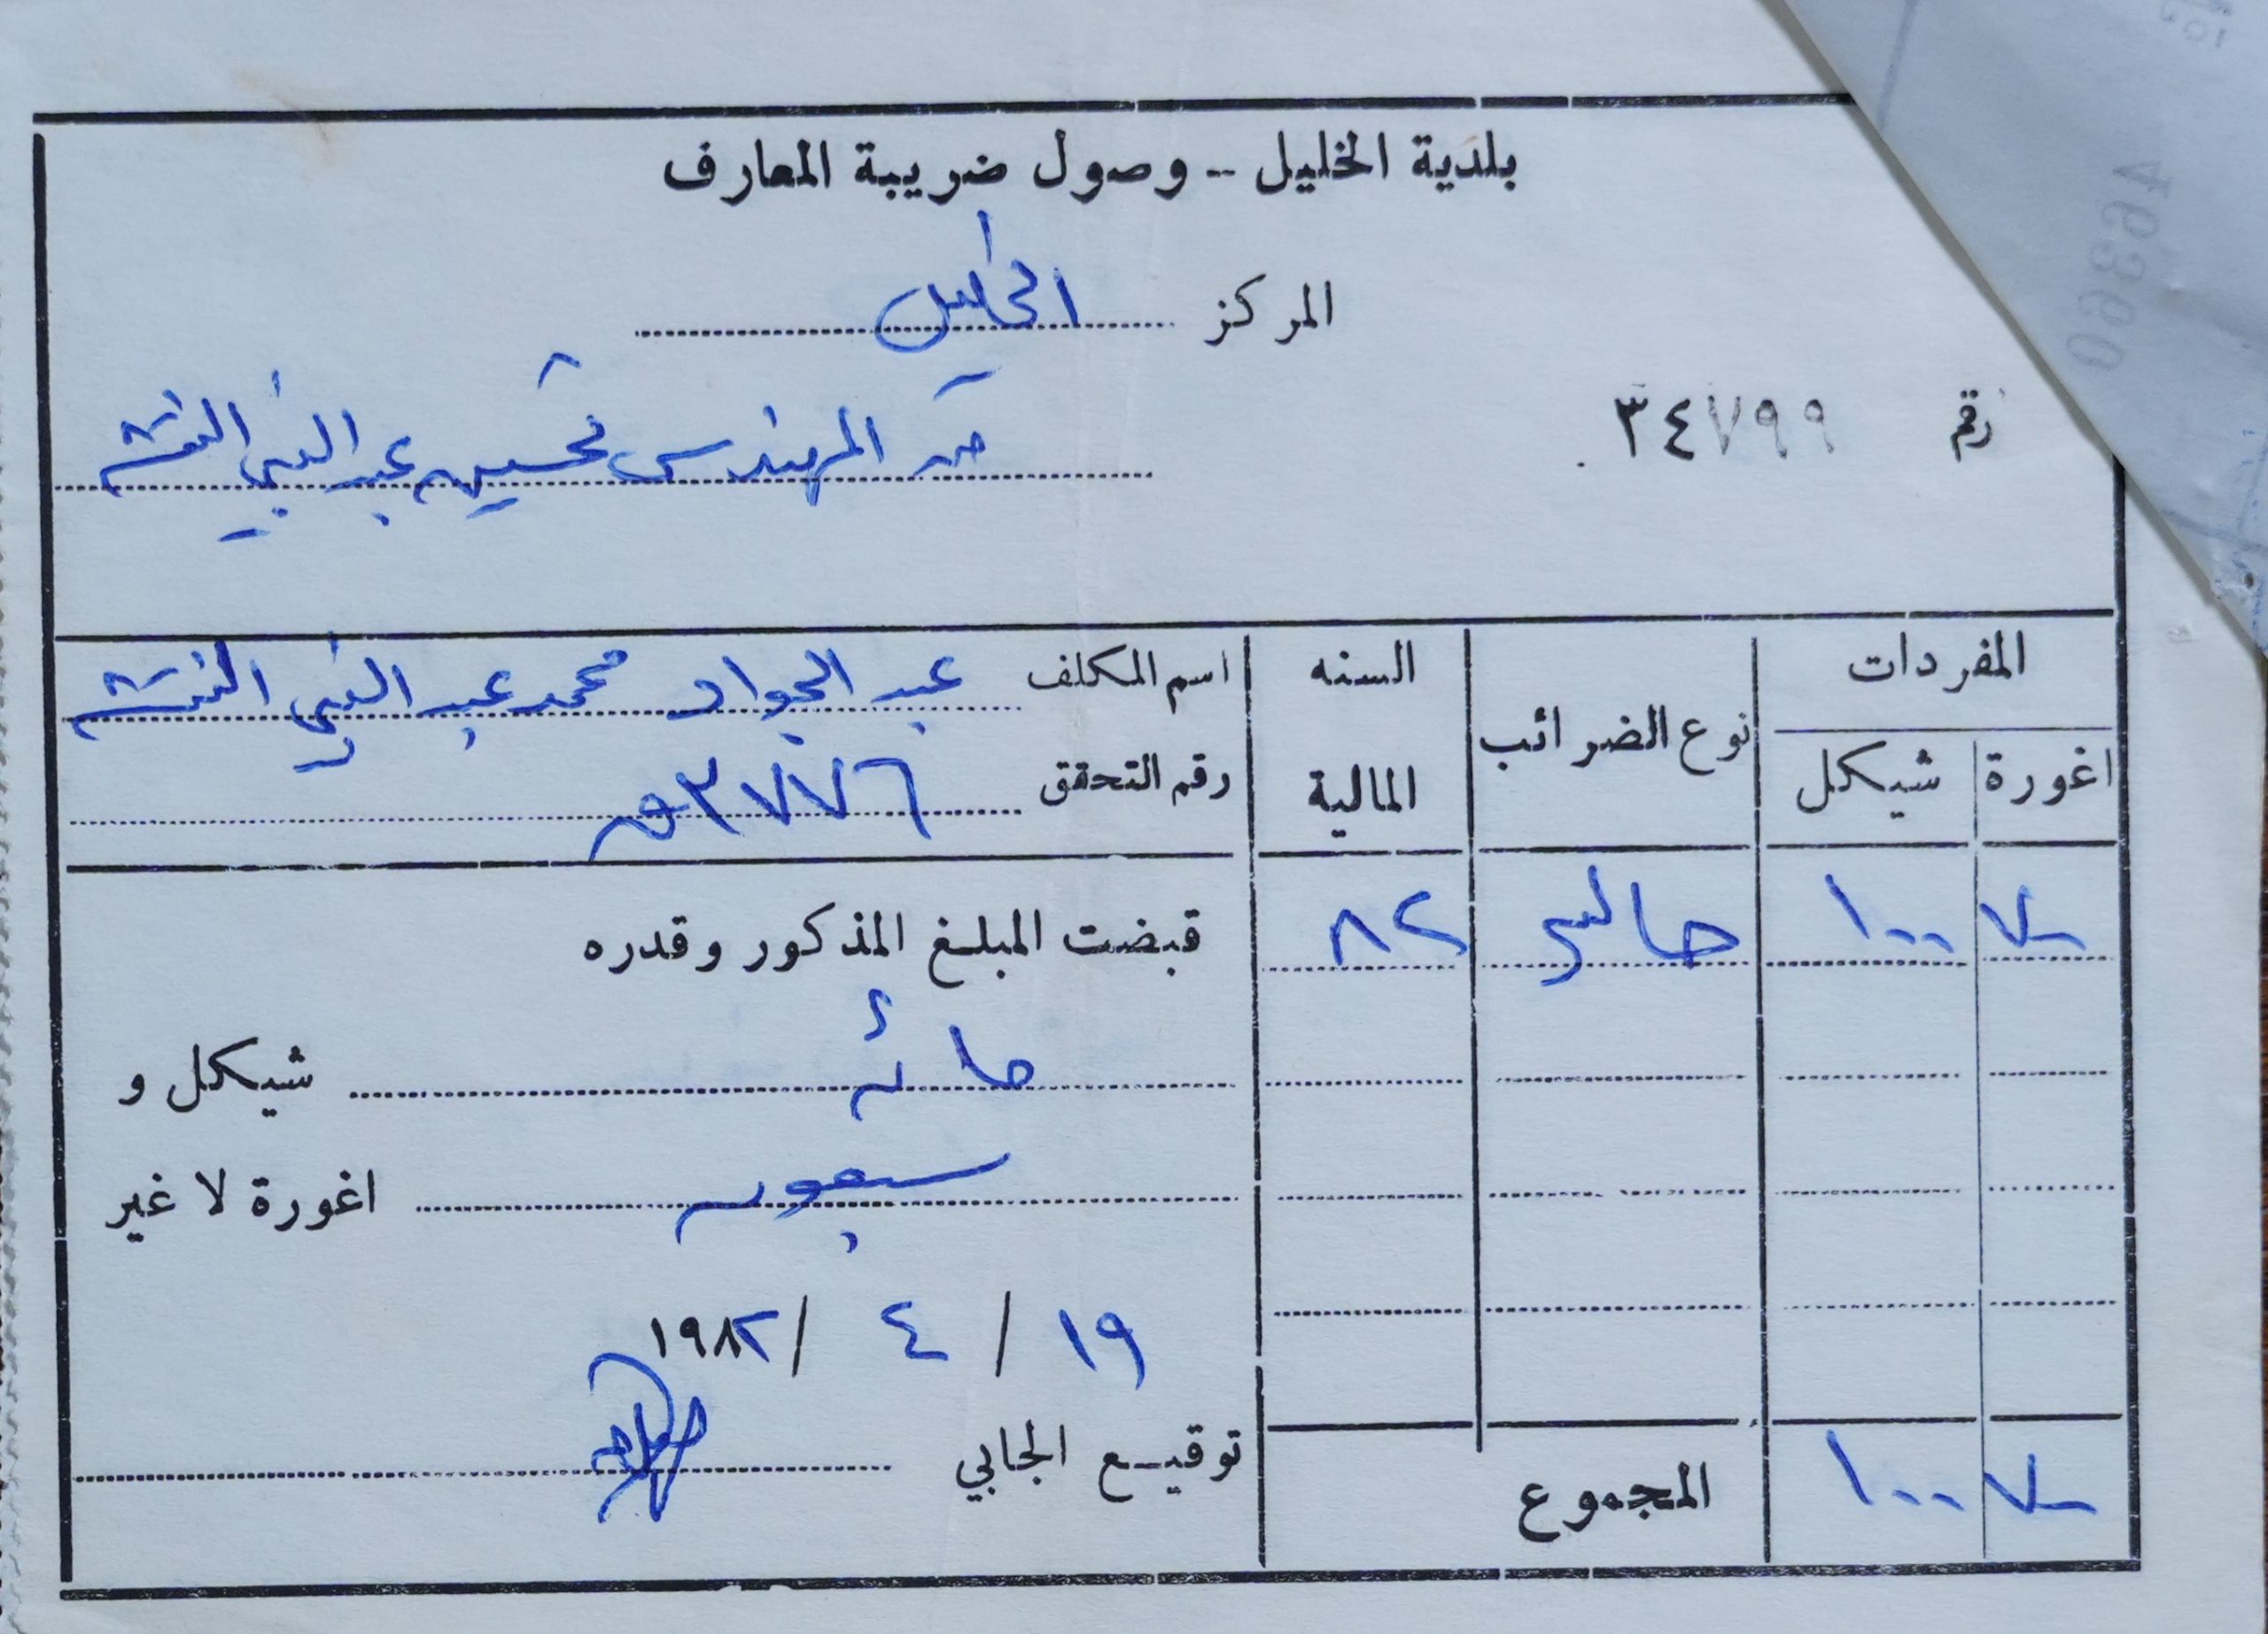 بلدية الخليل -- وصول ضريبة المعارف
المركز الخليل
رقم ٣٤٧٩٩
من المهندس تحسين عبد النبي النتشه
المفردات
اغورة شيكل
نوع الضرائب
السنه المالية
اسم المكلف عبد الجواد محمد عبد النبي النتشه
رقم التحقق ٣٧٧٦
٧٠ ١٠٠ حالي ٨٢
قبضت المبلغ المذكور وقدره
مائة شيكل و
سبعون اغورة لا غير
١٩ / ٤ / ١٩٨٢
توقيع الجابي
المجموع ١٠٠ ٧٠
46360